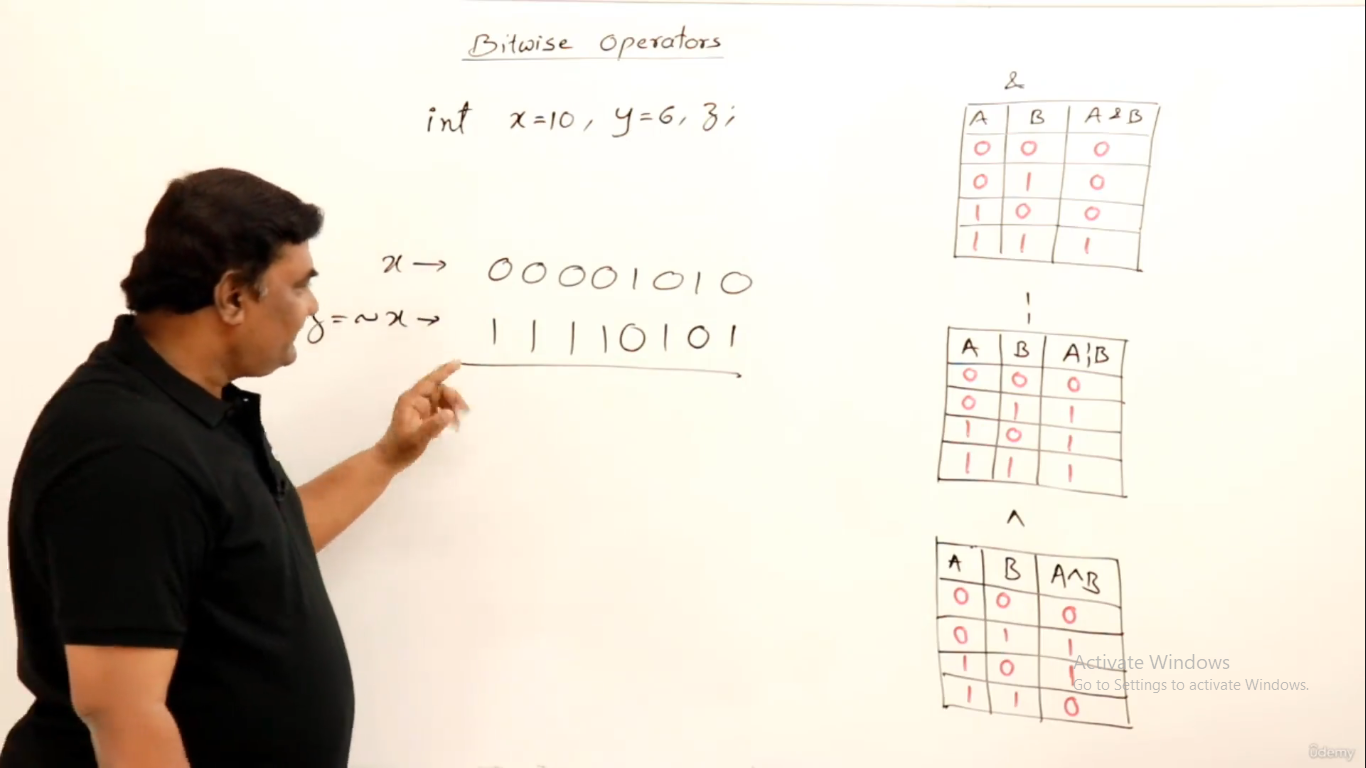 Bitwise Operators
int x=10, y=6, z;
x → 00001010
y = ~x → 11110101
&
A B A&B
0 0 0
0 1 0
1 0 0
1 1 1
¦
A B A¦B
0 0 0
0 1 1
1 0 1
1 1 1
^
A B A^B
0 0 0
0 1 1
1 0 1
1 1 0
Activate Windows
Go to Settings to activate Windows.
ûdemy